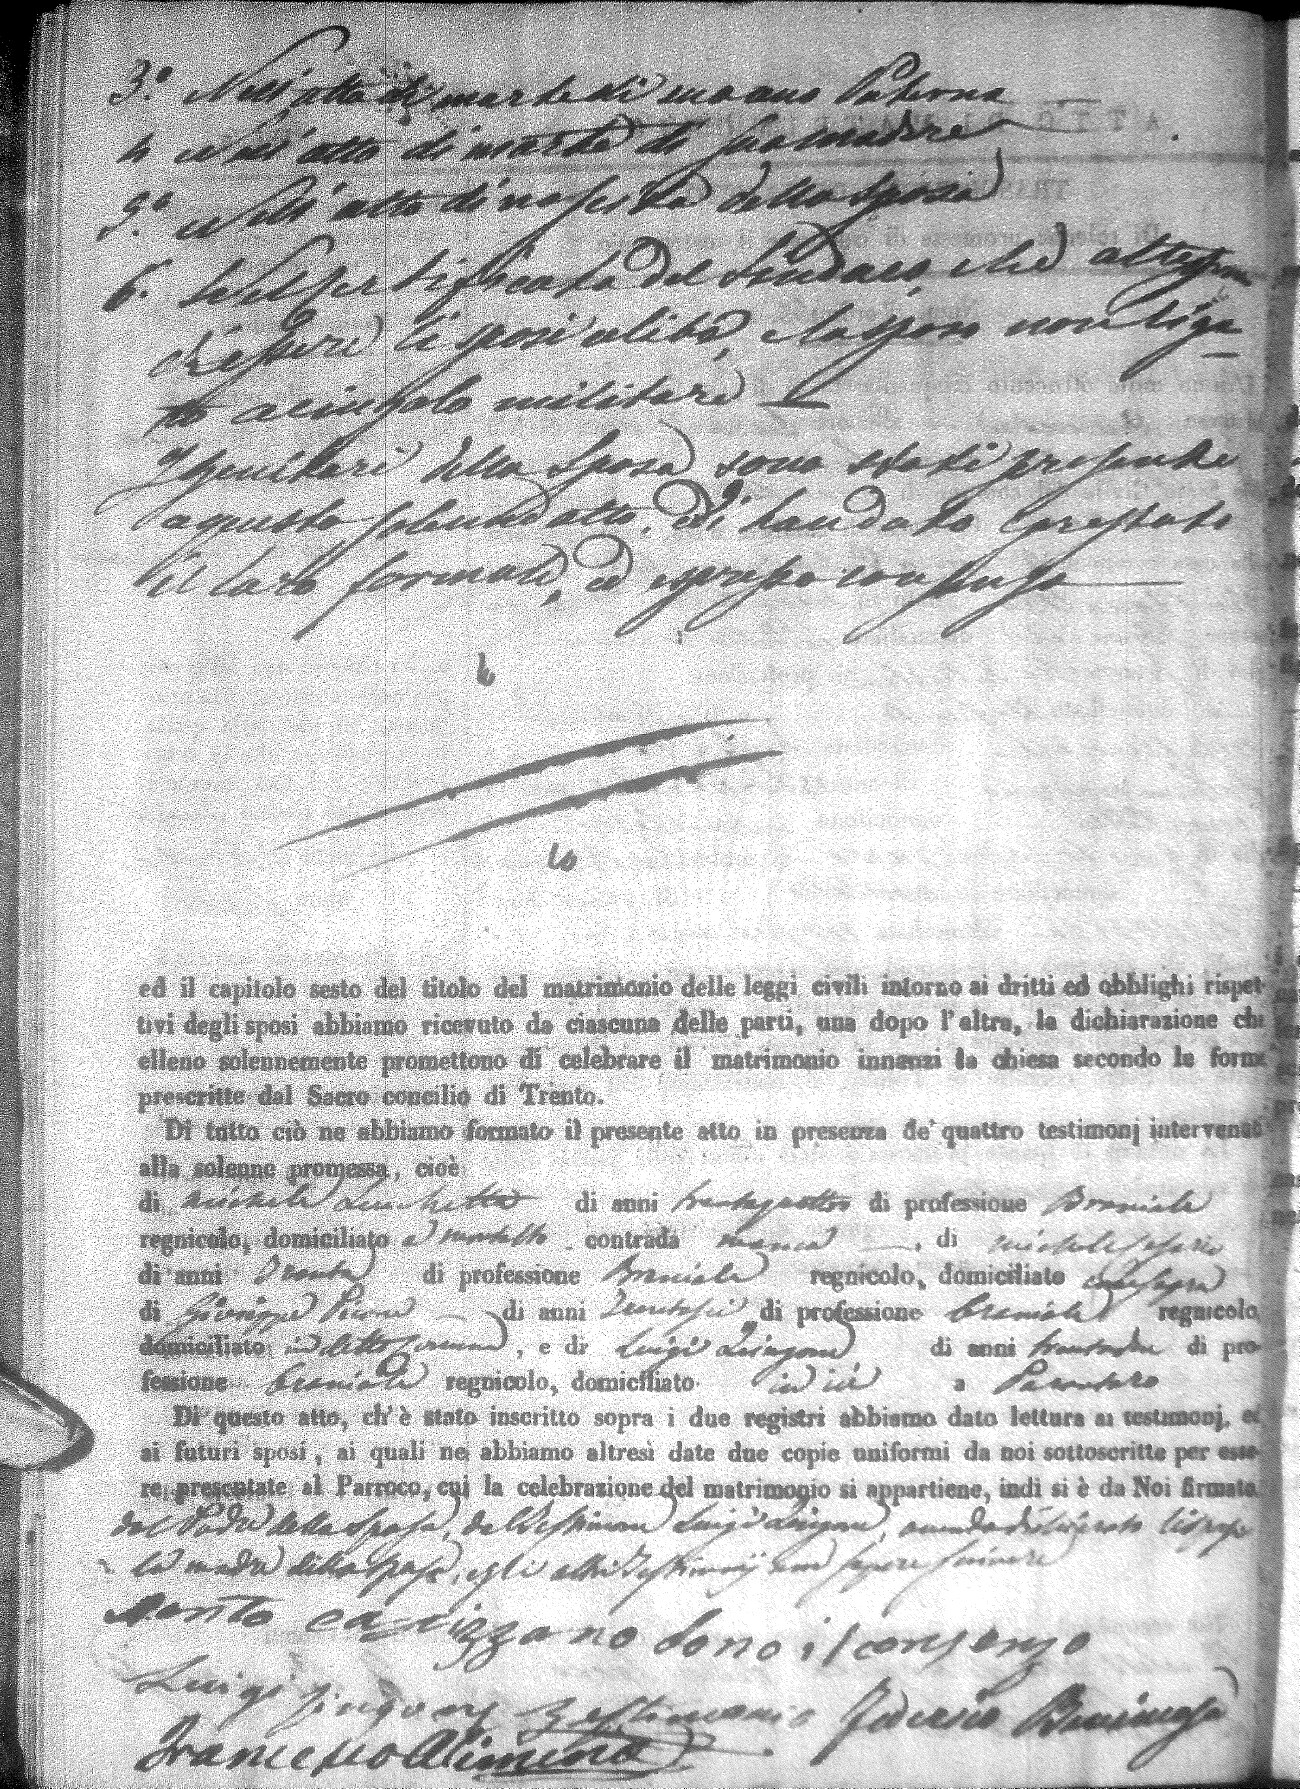 3.° Nell'atto di morte di suo avo Paterno
4 Nell'atto di morte di sua madre
5.° Nell'atto di nascita della sposa
6. Nel certificato del Sindaco, che attesta
d'essere li sposi celibi, e lo sposo non liga
to a cingolo militare
genitori della Sposa sono stati presenti
a questo solenne atto, ed hanno prestato
il loro formale, ed espresso consenso
ed il capitolo sesto del titolo del matrimonio delle leggi civili intorno ai dritti ed obblighi rispet-
tivi degli sposi abbiamo ricevuto da ciascuna delle parti, una dopo l'altra, la dichiarazione che
elleno solennemente promettono di celebrare il matrimonio innanzi la chiesa secondo le forme
prescritte dal Sacro concilio di Trento.
Di tutto ciò ne abbiamo formato il presente atto in presenza de' quattro testimonj intervenuti
alla solenne promessa, cioè
di Michele di anni trentaquattro di professione Bracciale
regnicolo, domiciliato a contrada , di Michele
di anni Trenta di professione Bracciale regnicolo, domiciliato
di Giuseppe di anni di professione Bracciale regnicolo
domiciliato in detto , e di Luigi Lingone di anni di pro-
fessione Bracciale regnicolo, domiciliato ivi a
Di questo atto, ch'è stato inscritto sopra i due registri abbiamo dato lettura ai testimonj, ed
ai futuri sposi, ai quali ne abbiamo altresì date due copie uniformi da noi sottoscritte per esse-
re presentate al Parroco, cui la celebrazione del matrimonio si appartiene, indi si è da Noi firmato
dal Padre della sposa, dal Testimone Luigi Lingone, avendo dichiarato li sposi
la madre della sposa, e gli altri Testimonj non sapere scrivere
Santo Carizzano dono il consenzo
Luigi Lingone Testimonio Federico
Francesco Alimena